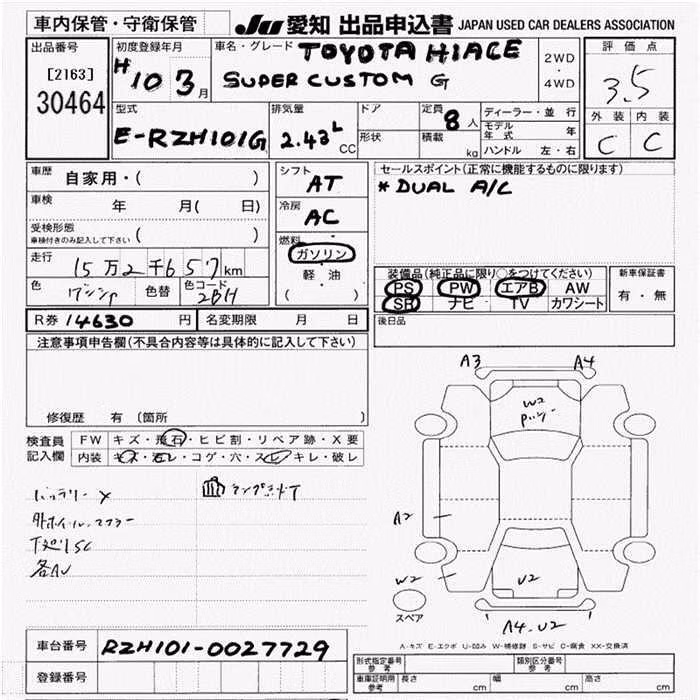 車内保管・守衛保管 JU 愛知 出品申込書 JAPAN USED CAR DEALERS ASSOCIATION
出品番号
[2163]
30464
初度登録年月
H10 3月
車名・グレード TOYOTA HIACE
SUPER CUSTOM G
2WD
・
4WD
評価点
3.5
外装 内装
C C
型式
E-RZH101G
排気量
2.43L
CC
ドア
形状
定員 8人
積載 kg
ディーラー・並行
モデル年式 年
ハンドル 左・右
車歴 自家用・( )
車検 年 月( 日)
受検形態
車検付きのみ記入して下さい ( )
走行 15万2千657km
色 色替 色コード 2BH
シフト AT
冷房 AC
燃料
ガソリン
軽・油
( )
セールスポイント(正常に機能するものに限ります)
* DUAL A/C
装備品(純正品に限り○をつけてください)
PS PW エアB AW
SR ナビ TV カワシート
新車保証書
有・無
R券 14630円 名変期限 月 日
後日品
注意事項申告欄(不具合内容等は具体的に記入して下さい)
修復歴 有 〔箇所 〕
検査員記入欄
FW キズ・飛石・ヒビ割・リペア跡・X要
内装 キズ・汚レ・コゲ・穴・スレ・キレ・破レ
バッテリーX
下廻りSC
各AU
A3 A4
W2
A2
W2
U2
スペア
A4.U2
A-キズ E-エクボ U-凹み W-補修跡 S-サビ C-腐食 XX-交換済
車台番号 RZH101-0027729
登録番号
形式指定番号
参考
類別区分番号
参考
車庫証明用
参考
長さ cm 幅 cm 高さ cm